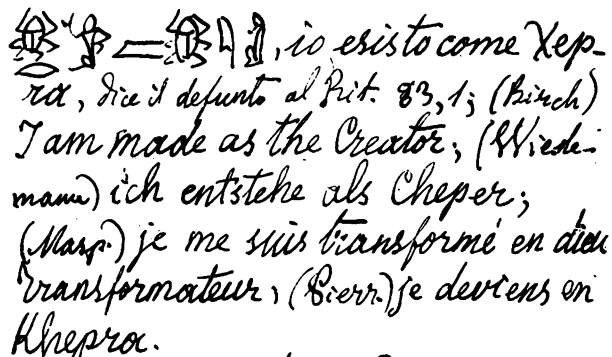 , io esisto come Xep-
ra, dice il defunto al Rit. 83, 1; (Birch)
I am made as the Creator; (Wiede-
mann) ich entstehe als Cheper;
(Masp.) je me suis transformé en dieu
transformateur, (Pierr.) je deviens en
Khepra.